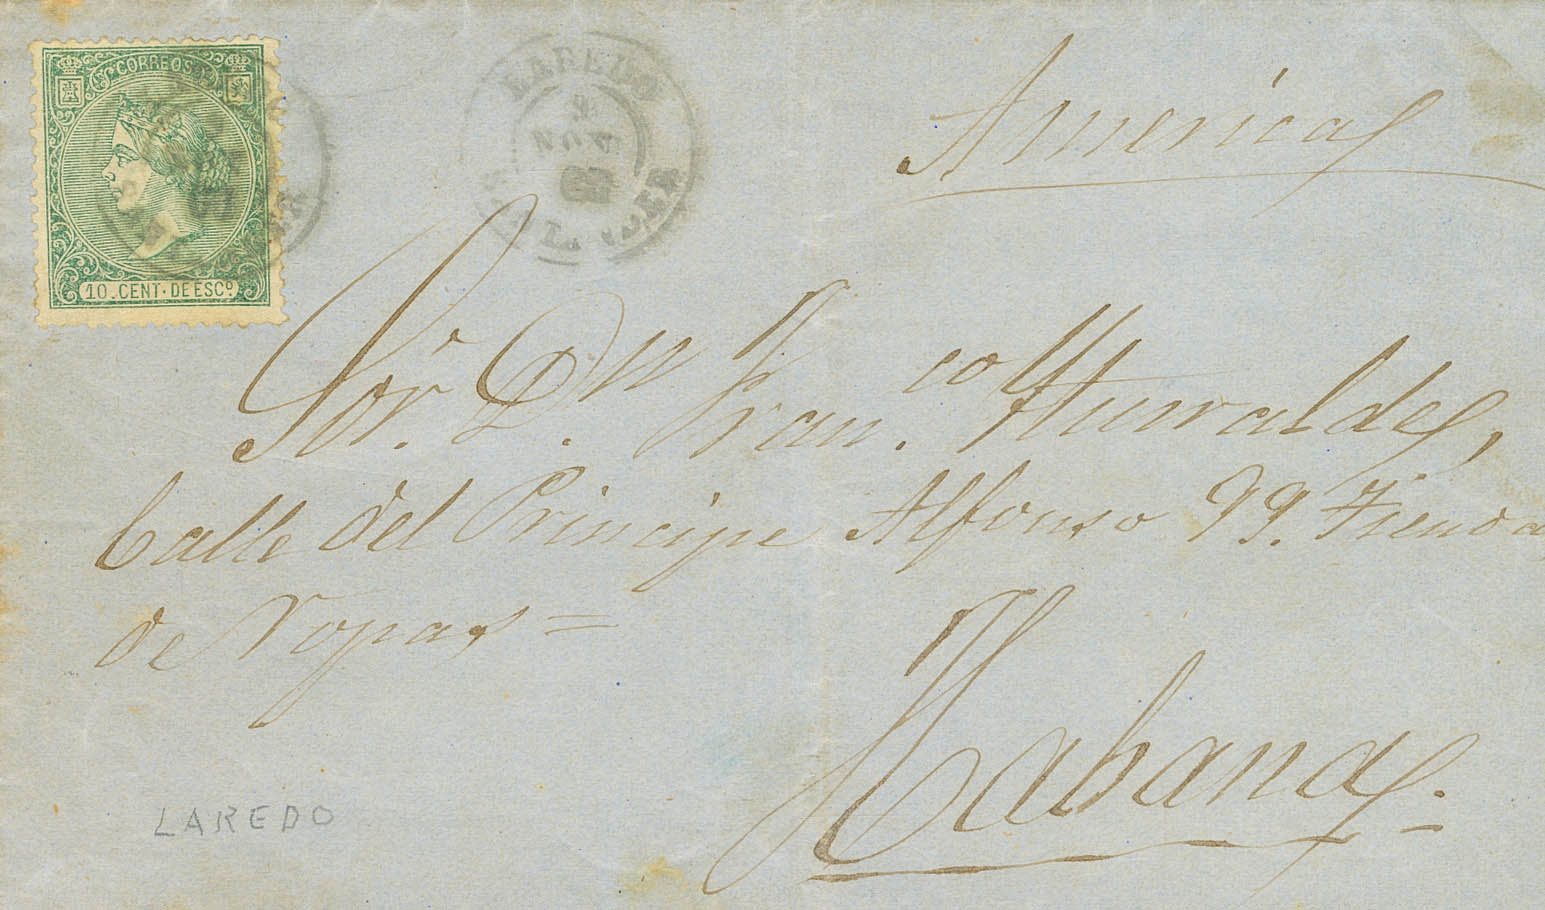 CORREOS
10. CENT. DE ESCº
LAREDO
NOV
Americas
Sor. D. Dn Franco. Yturralde,
Calle del Principe Alfonso 99. Tienda
de Ropas =
Habana.
LAREDO